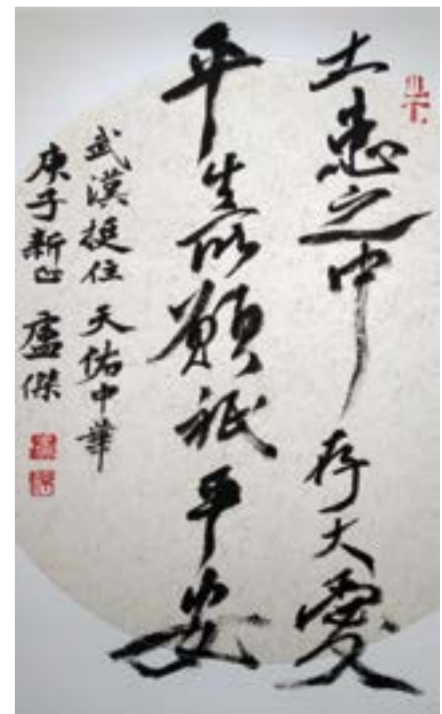 患之中存大愛
平生所願祇平安
武漢挺住 天佑中華
庚子新正 盧傑